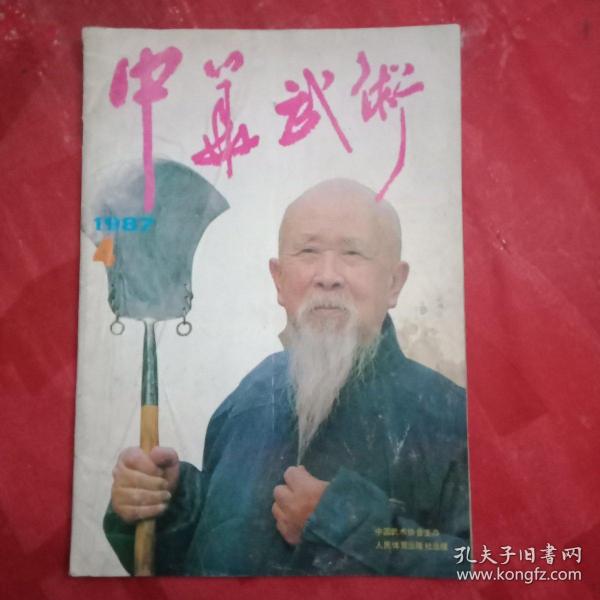 中华武術
1987
4
中国武术协会主办
人民体育出版社出版
孔夫子旧书网
www.kongfz.com